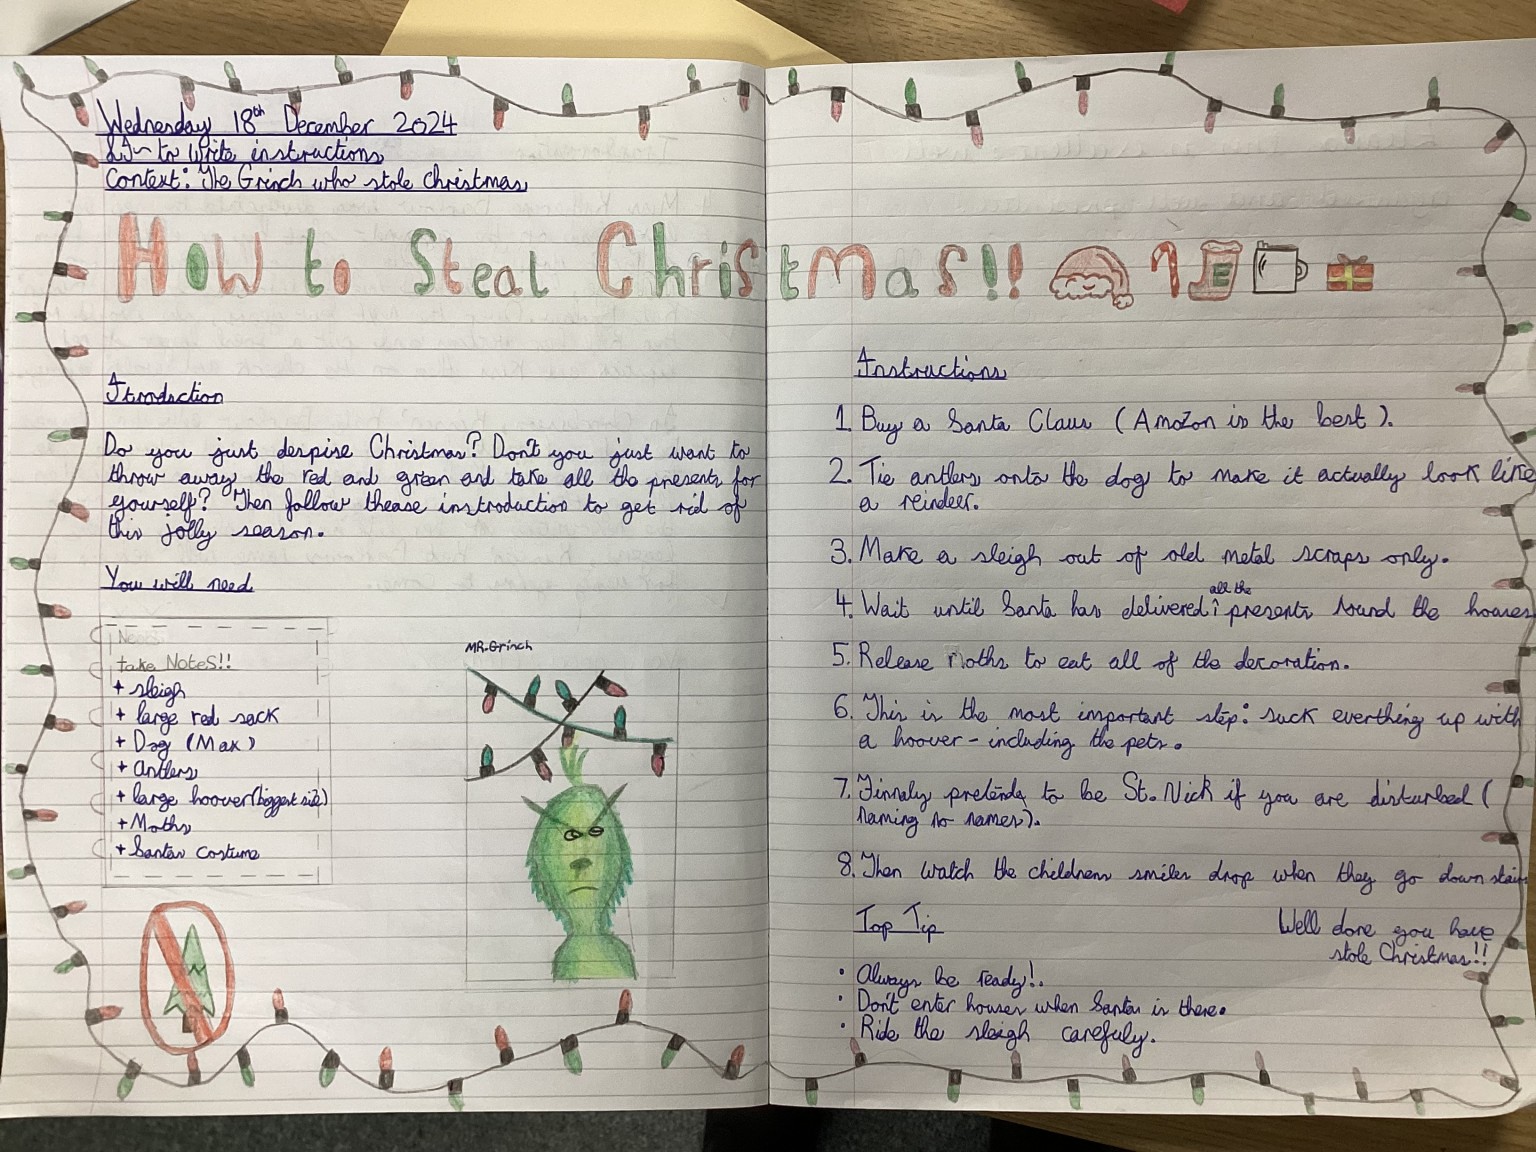 Wednesday 18th December 2024
LI~ to write instructions
Context: The Grinch who stole christmas
How to Steal Christmas!!
E
Itroduction
Do you just despise Christmas? Don't you just want to
throw away the red and green and take all the presents for
yourself? Then follow thease instroduction to get rid of
this jolly season.
You will need
take Notes!!
+ sleigh
+ large red sack
+ Dog (Max)
+ Antlers
+ large hoover (biggest size)
+ Moths
+ Santas costume
MR.Grinch
Instructions
1. Buy a Santa Claus (Amazon is the best).
2. Tie antlers onto the dog to make it actually look like
a reindeer.
3. Make a sleigh out of old metal scraps only.
all the
4. Wait until Santa has delivered presents round the houses
5. Release moths to eat all of the decoration.
6. This is the most important step: suck everthing up with
a hoover - including the pets.
7. Finnaly pretend to be St. Nick if you are disturbed (
naming no names).
8. Then watch the childrens smiles drop when they go down stairs
Well done you have
stole Christmas!!
Top Tip
• Always be ready!.
• Don't enter houses when Santa is there.
• Ride the sleigh carefuly.